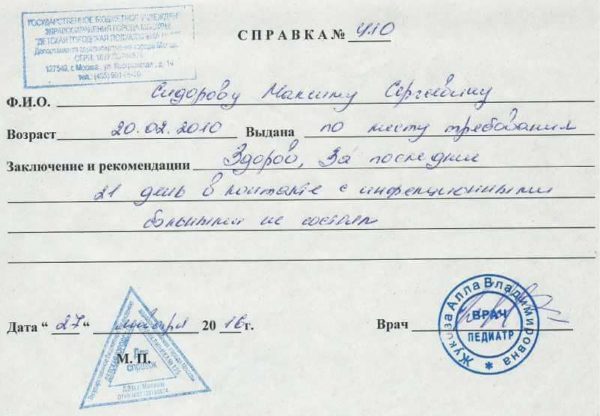 ГОСУДАРСТВЕННОЕ БЮДЖЕТНОЕ УЧРЕЖДЕНИЕ
ЗДРАВООХРАНЕНИЯ ГОРОДА МОСКВЫ
"ДЕТСКАЯ ГОРОДСКАЯ ПОЛИКЛИНИКА
Департамента здравоохранения города Москвы
ОГРН
127549, г. Москва, ул. д.
тел. (495)
СПРАВКА № 410
Ф.И.О. Сидорову Максиму Сергеевичу
Возраст 20.02.2010 Выдана по месту требования
Заключение и рекомендации Здоров, За последние
21 день в контакте с инфекционными
больными не состоял
Дата "27" января 2016г. Врач
М. П.
Для справок
Жукова Алла Владимировна
ВРАЧ
ПЕДИАТР